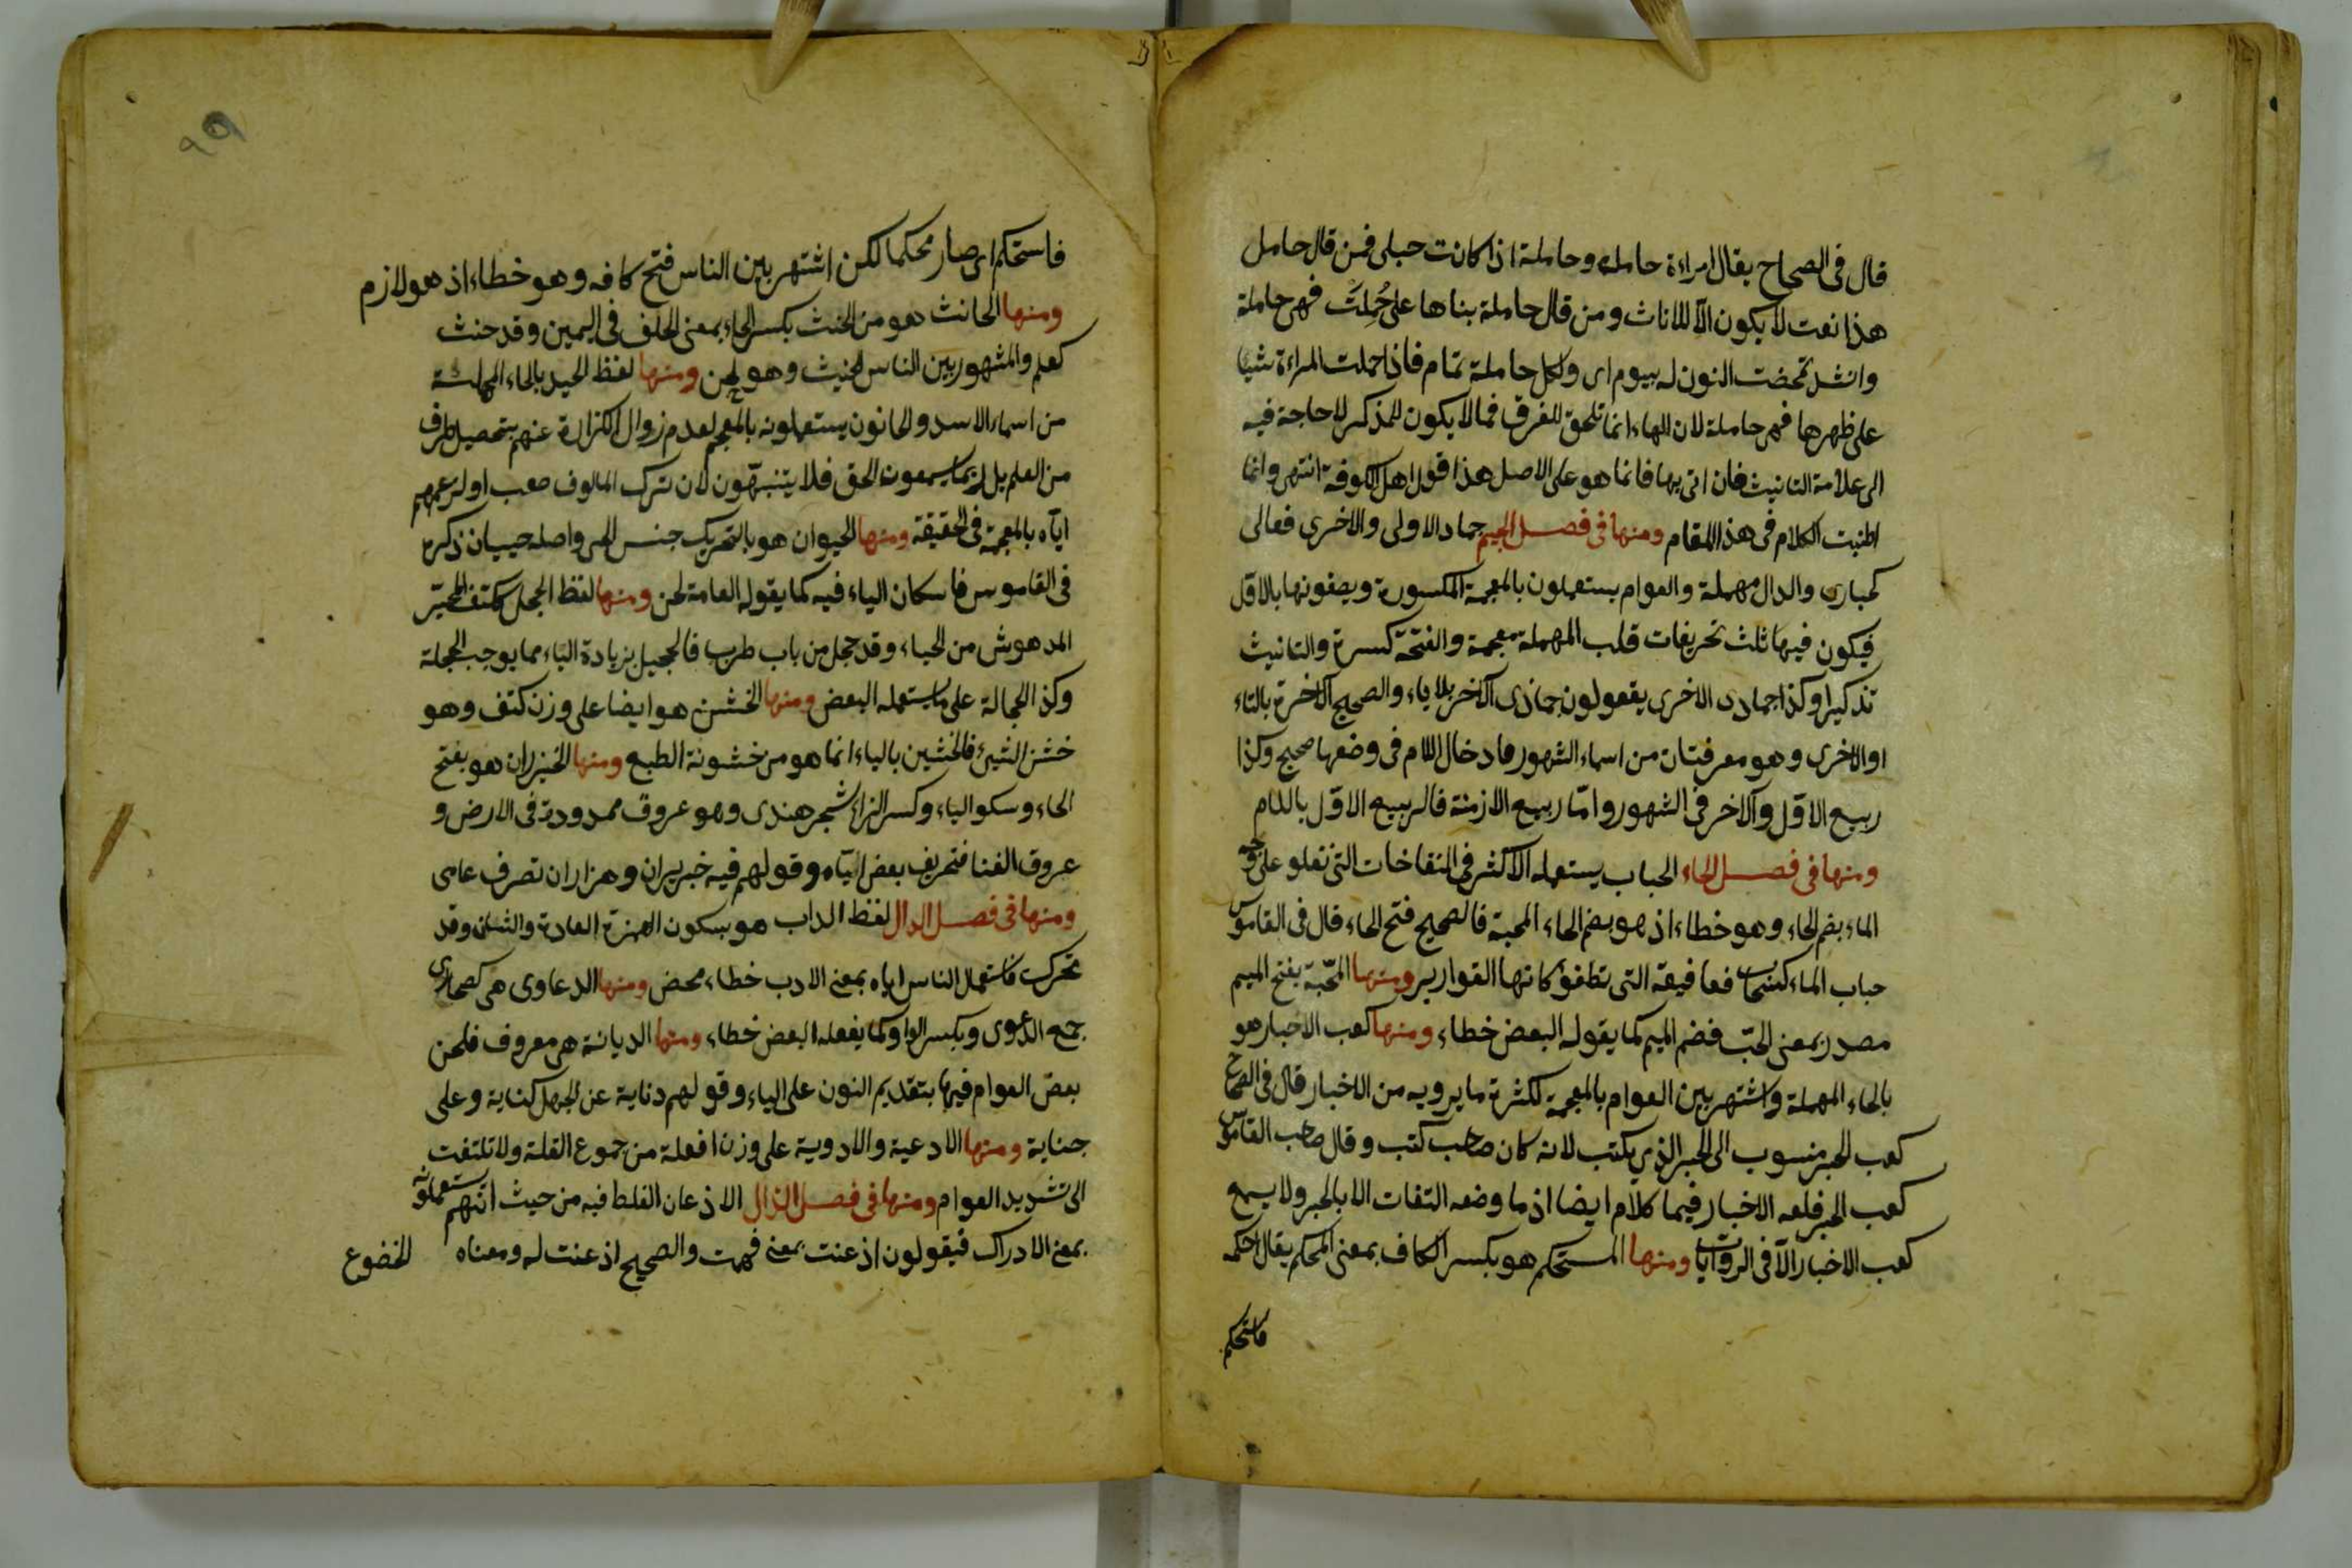 قال فى الصحاح يقال امراءة حامل وحاملة اذا كانت حبلى فمن قال حامل
هذا نعت لا يكون الّا للاناث ومن قال حاملة بناها على حُمِلَتْ فهى حاملة
وانشد تمخضت النون له بيوم اى ولكل حاملة تمام فاذا حملت المراءة شيئا
على ظهرها فهى حاملة لان الهاء انما تلحق للفرق فما لا يكون للمذكر لا حاجة فيه
الى علامة التانيث فان اتى بها فانما هو على الاصل هذا قول اهل الكوفة انتهى وانما
اطنبت الكلام فى هذا المقام ومنها فى فصل الجيم جماد الاولى والاخرى فعالى
كحبارى والدال مهملة والعوام يستعملون بالمعجمة المكسورة ويصفونها بالاوّل
فيكون فيها ثلث تحريفات قلب المهملة معجمة والفتحة كسرة والتانيث
تذكيرا وكذا جمادى الاخرى يقعولون جماذى الآخر بلا ياء والصحيح الآخرة بالتاء
او الاخرى وهو معرفتان من اسماء الشهور فادخال اللام فى وضعها صحيح وكذا
ربيع الاوّل والآخر فى الشهور وامّا ربيع الازمنة فالربيع الاوّل باللام
ومنها فى فصل الحاء الحباب يستعمله الاكثر فى النفاخات التى تعلو على وجه
الماء بضم الحاء وهو خطاء اذ هو بضم الحاء المحبة فالصحيح فتح الحاء قال فى القاموس
حباب الماء كسحاب فعا فيقه التى تطفو كانها القوارير ومنها المحّبة بفتح الميم
مصدر بمعنى الحبّ فضم الميم كما يقوله البعض خطاء ومنها كعب الاحبار هو
بالحاء المهملة واشتهر بين العوام بالمعجمة لكثرة ما يرويه من الاخبار قال فى الصحاح
كعب الحبر منسوب الى الحبر الذى يكتب لانه كان صاحب كتب وقال صاحب القاموس
كعب الحبر فلعه الاخبار فيما كلام ايضا اذ ما وضعه التفات الا بالحبر ولا يسمع
كعب الاخبار الّا فى الروايات ومنها المستحكم هو بكسر الكاف بمعنى المحكم يقال احكمه
فاستحكم
فاستحكم اى صار محكما لكن اشتهر بين الناس فتح كافه وهو خطاء اذ هو لازم
ومنها الحانث هو من الحنث بكسر الحاء بمعنى الحلف فى اليمين وقد حنث
كعلم والمشهور بين الناس الحنيث وهو لحن ومنها لفظ الحيدر بالحاء المهملة
من اسماء الاسد والحانون يستعملونه بالمعجم لعدم زوال الكزارة عنهم بتحصيل طرف
من العلم بل ربما يسمعون الحق فلا يتنبّهون لان ترك المالوف صعب او لزعمهم
ايّاه بالمعجمة فى الحقيقة ومنها الحيوان هو بالتحريك جنس للحى واصله حييان ذكره
فى القاموس فاسكان الياء فيه كما يقوله العامة لحن ومنها لفظ الخجل ككتف المتحيّر
المدهوش من الحياء وقد خجل من باب طرب فالخجيل بزيادة الياء مما يوجب الخجلة
وكذا الخجالة على ما يستعمله البعض ومنها الخشن هو ايضا على وزن كتف وهو
خشن الشئ فالخشين بالياء انما هو من خشونة الطبع ومنها الخيزران هو بفتح
الحاء وسكو الياء وكسر الزاء شجر هندى وهو عروق ممدودة فى الارض و
عروق الغنا فتحريف بعض ايّاه وقولهم فيه خبريران وهزاران تصرف عامى
ومنها فى فصل الدال لفظ الداب هو بسكون الهمزة العادة والشان وقد
تحرك فاستعمال الناس اياه بمعنى الادب خطاء محض ومنها الدعاوى هى كصحارى
جمع الدعوى وبكسر الواو كما يفعله البعض خطاء ومنها الديانة هى معروف فلحن
بعض العوام فيها بتقديم النون على الياء وقولهم دناية عن الجهل كناية وعلى
جناية ومنها الادعية والادوية على وزن افعلة من جموع القلة ولا تلتفت
الى تشديد العوام ومنها فى فصل الذال الاذعان الغلط فيه من حيث انهم يستعملونه
بمعنى الادراك فيقولون اذعنت بمعنى فهمت والصحيح اذعنت له ومعناه
الخضوع